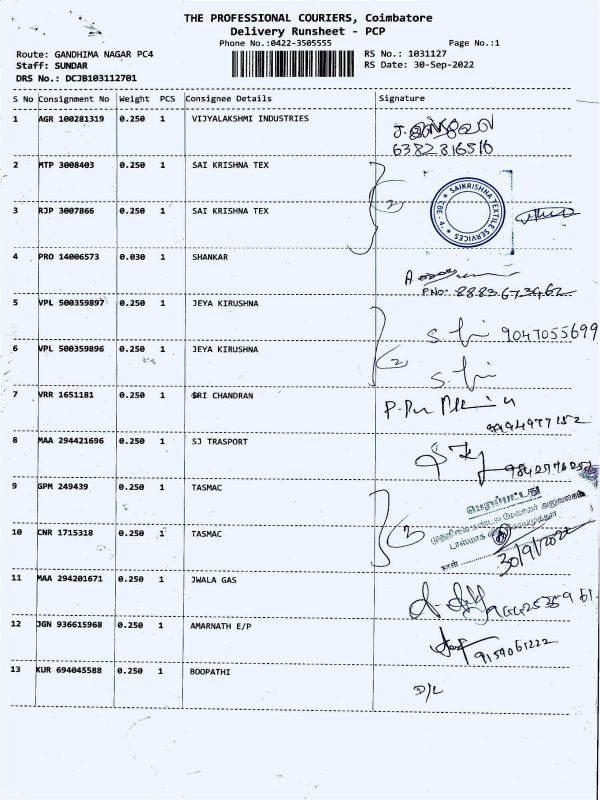 THE PROFESSIONAL COURIERS, Coimbatore
Delivery Runsheet - PCP
Phone No.:0422-3505555
Page No.:1
Route: GANDHIMA NAGAR PC4
RS No.: 1031127
Staff: SUNDAR
RS Date: 30-Sep-2022
DRS No.: DCJB103112701
S No Consignment No Weight PCS Consignee Details Signature
1 AGR 100281319 0.250 1 VIJYALAKSHMI INDUSTRIES
6382316510
2 MTP 3008403 0.250 1 SAI KRISHNA TEX
2
★ SAIKRISHNA TEXTILE SERVICES ★ CBE - 4.
3 RJP 3007866 0.250 1 SAI KRISHNA TEX
4 PRO 14006573 0.030 1 SHANKAR
PNO: 8883673962
5 VPL 500359897 0.250 1 JEYA KIRUSHNA
9047055699
2
6 VPL 500359896 0.250 1 JEYA KIRUSHNA
7 VRR 1651181 0.250 1 SRI CHANDRAN
9994977152
8 MAA 294421696 0.250 1 SJ TRASPORT
9 GPM 249439 0.250 1 TASMAC
பெறப்பட்டது
10 CNR 1715318 0.250 1 TASMAC
நாள்
30/9/2022
11 MAA 294201671 0.250 1 JWALA GAS
12 JGN 936615968 0.250 1 AMARNATH E/P
9159061222
13 KUR 694045588 0.250 1 BOOPATHI
D/L